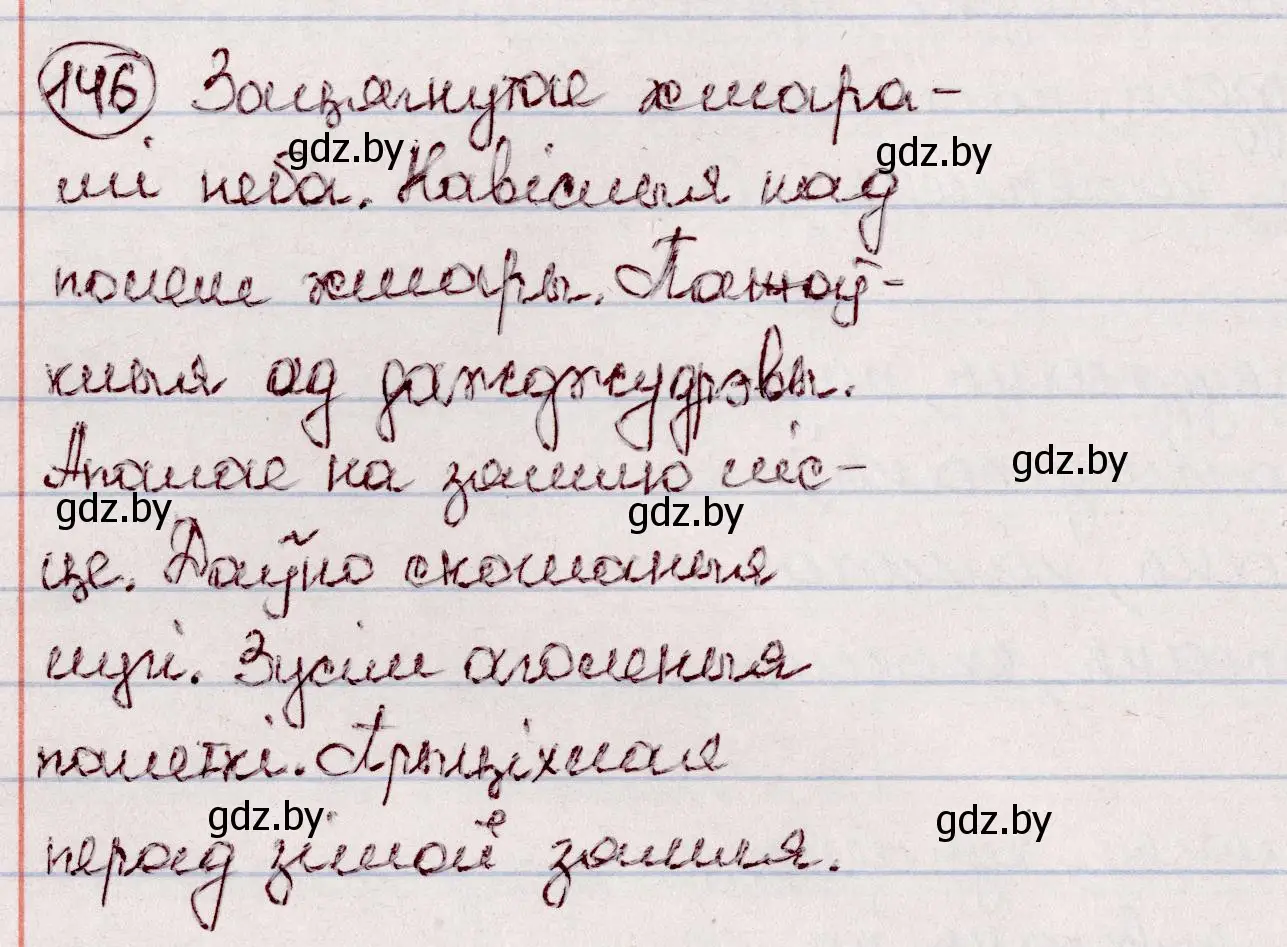 146 Зацягнутае хмара-
мі неба. Навіслыя над
полем хмары. Пажоў-
клыя ад дажджу дрэвы.
Апалае на зямлю ліс-
це. Даўно скошаныя
лугі. Зусім аголеныя
палеткі. Прыціхлая
перад зімой зямля.
gdz.by
gdz.by
gdz.by
gdz.by
gdz.by
gdz.by
gdz.by